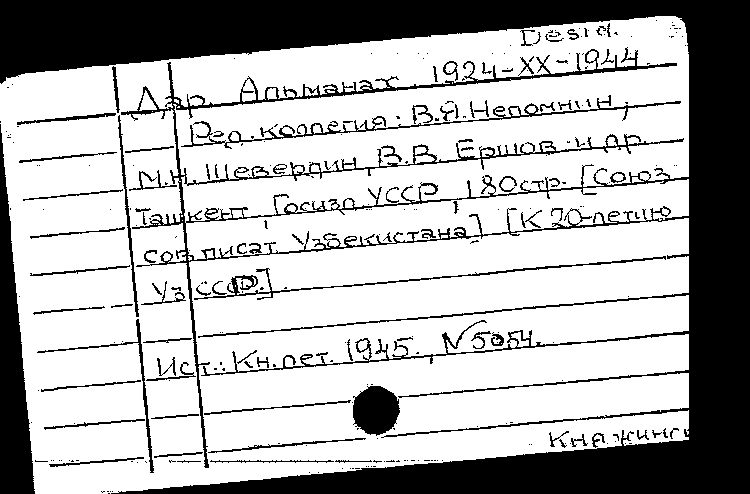 Desid.
Дар. Альманах. 1924-XX-1944.
Ред. коллегия: В.Я. Непомнин,
М.Н. Шевердин, В.В. Ершов и др.
Ташкент, Госизд УССР, 180 стр. [Союз
сов. писат. Узбекистана] [К 20-летию
УзССР.].
Ист.: Кн. лет. 1945., №5054.